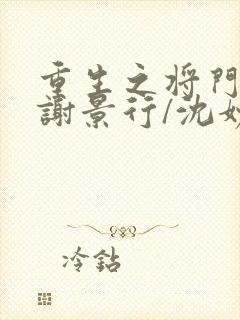 重生之将門
謝景行/沈妙
冷鉆